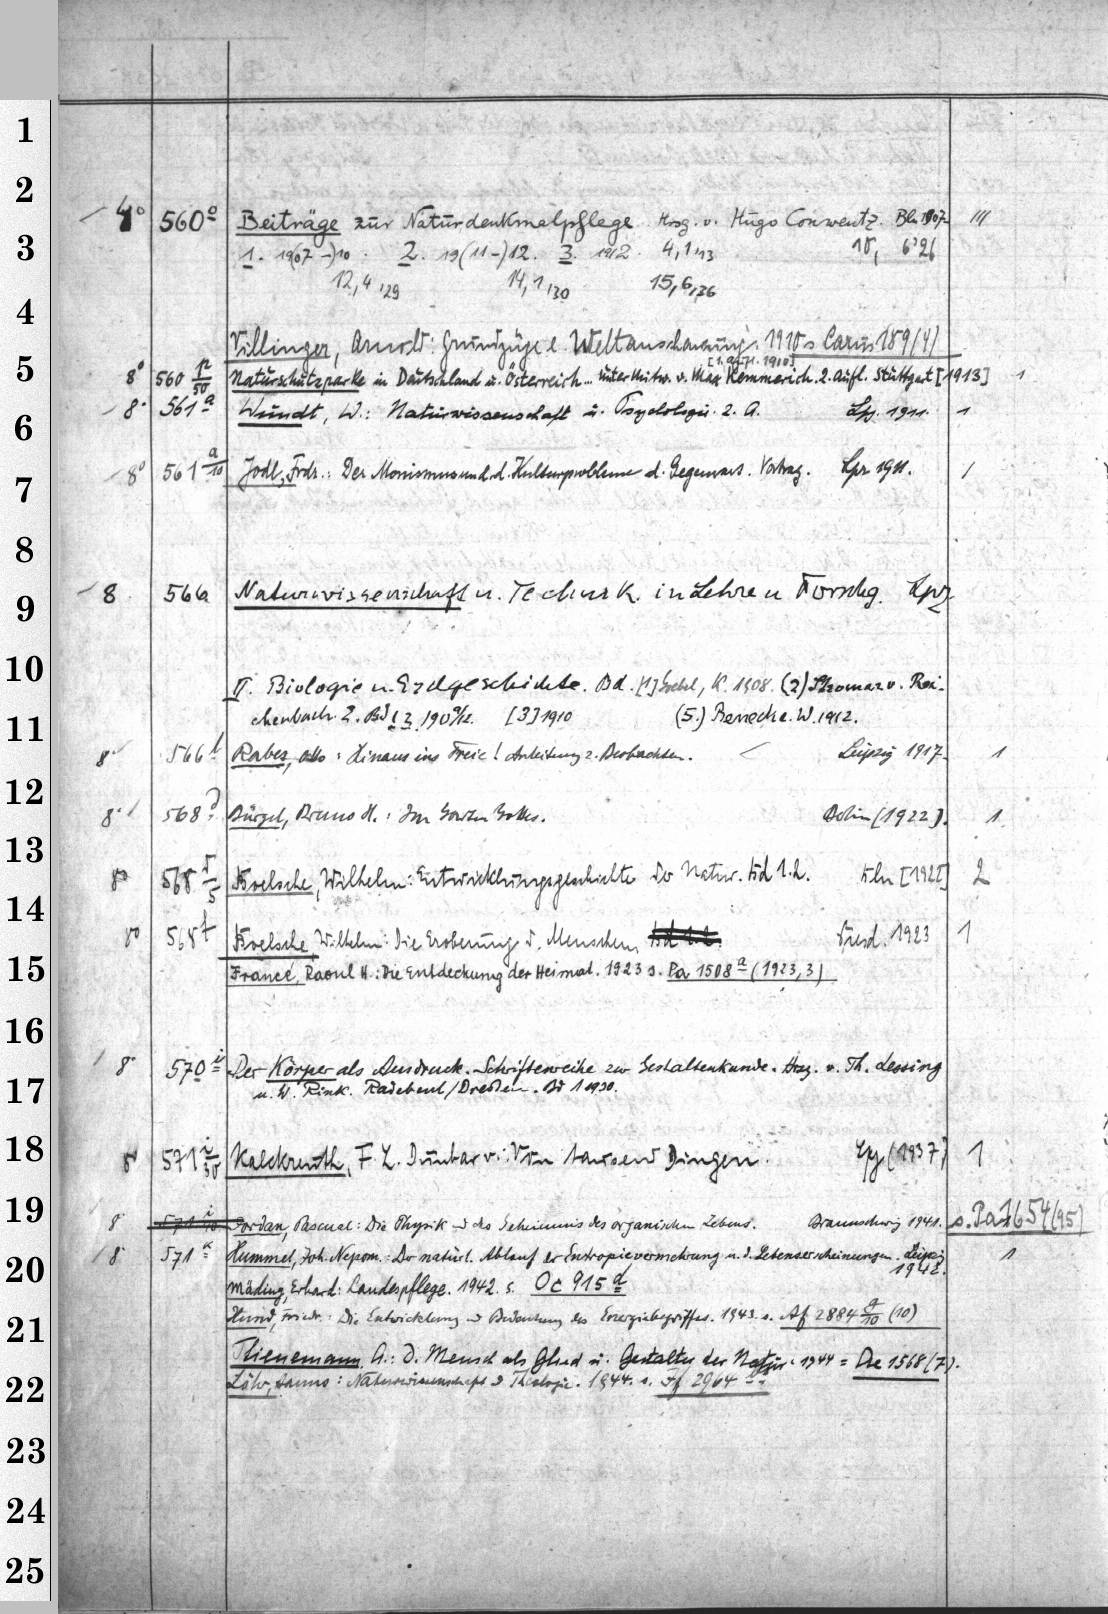 1
2
4° 560a Beiträge zur Naturdenkmalpflege Hrsg. v. Hugo Conwentz. Bln 1907- III
3
1. 19(07-)10. 2. 19(11-)12. 3. 1912. 4,1,13 10, 6'26
12,4,29 14,1,30 15,6,36
4
Villinger, Arnold: Grundzüge e. Weltanschauung. 1910 s. Carus 189(4)
5
[1. Aufl. 1910]
8° 560 p/50 Naturschutzparke in Deutschland u. Österreich... Unter Mitw. v. Max Kemmerich. 2. Aufl. Stuttgart [1913] 1
8° 561a Wundt, W.: Naturwissenschaft u. Psychologie. 2. A. Lpz. 1911. 1
6
8° 561 a/10 Jodl, Frdr.: Der Monismus und d. Kulturprobleme d. Gegenwart. Vortrag. Lpz 1911. 1
7
8
8 566a Naturwissenschaft u. Technik in Lehre u Forschg. Lpz
9
10
II. Biologie u. Erdgeschichte. Bd. [1] Goebel, K. 1908. (2) Stromer v. Rei-
11
chenbach 2. Bd 1 2, 1909/12. [3] 1910 (5.) Benecke. W. 1912.
8° 566b Rabes, Otto: Hinaus ins Freie! Anleitung z. Beobachten. Leipzig 1917. 1
12
8° 568 Bürgel, Bruno H.: Im Garten Gottes. Berlin [1922]. 1.
13
8° 568 /5 Boelsche, Wilhelm: Entwicklungsgeschichte der Natur. Bd 1.2. Bln [1922] 2
14
8° 568t Boelsche, Wilhelm: Die Eroberung d. Menschen Bd 1.2. Dresd. 1923 1
15
Francé, Raoul H.: Die Entdeckung der Heimat. 1923 s. Pa 1508a (1923,3)
16
8° 570i Der Körper als Ausdruck. Schriftenreihe zur Gestaltenkunde. Hrsg. v. Th. Lessing
17
u. W. Rink. Radebeul/Dresden. Bd 1 1930.
18
8° 571 i/50 Kalckreuth, F. L. Dunbar v.: Von tausend Dingen. Lpz (1937) 1
19
8° 571 i/10 Jordan, Pascual: Die Physik u. das Geheimnis des organischen Lebens. Braunschweig 1941. s. Pa 1654 (95)
8° 571k Hummel, Joh. Nepom.: Der natürl. Ablauf der Entropievermehrung u. d. Lebenserscheinungen. Leipzig 1
20
1942.
Mäding, Erhard: Landespflege. 1942. s. Oc 915d
21
Hund, Friedr.: Die Entwicklung u. Bedeutung des Energiebegriffes. 1943. s. Af 2884 a/10 (10)
Thienemann, A.: D. Mensch als Glied u. Gestalter der Natur. 1944 = Ae 1568 (7).
22
Löhr, Hanns: Naturwissenschaft u. Theologie. 1944. s. Ff 2964
23
24
25